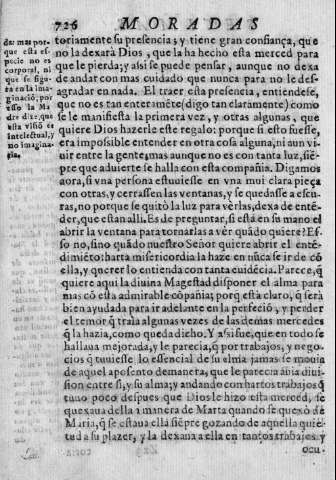 726 MORADAS
da: mas por-
que esta es-
pecie no es
corporal, ni
que se figu-
ra en la ima-
ginació; por
esso la Ma-
dre dize, que
esta visió es
intelectual, y
no imagina-
ria.
toriamente su presencia; y tiene gran confiança, que
no la dexarà Dios, que la ha hecho esta merced para
que le pierda; y assi se puede pensar, aunque no dexa
de andar con mas cuidado que nunca para no le des-
agradar en nada. El traer esta presencia, entiendese,
que no es tan enteraméte (digo tan claramente) como
se le manifiesta la primera vez, y otras algunas, que
quiere Dios hazerle este regalo: porque si esto fuesse,
era impossible entender en otra cosa alguna, ni aun vi-
uir entre la gente; mas aunque no es con tanta luz, sié-
pre que aduierte se halla con esta compañia. Digamos
aora, si vna persona estuuiesse en vna mui clara pieça
con otras, y cerrassen las ventanas, y se quedasse a escu-
ras, no porque se quitò la luz para verlas, dexa de enté-
der, que estan alli. Es de preguntar, si està en su mano el
abrir la ventana para tornarlas a ver quãdo quiere? Es-
so no, sino quãdo nuestro Señor quiere abrir el enté-
dimiéto: harta misericordia la haze en nũca se ir de cõ
ella, y querer lo entienda con tanta euidécia. Parece, q̃
quiere aqui la diuina Magestad disponer el alma para
mas cõ esta admirable cõpañia; porq̃ està claro, q̃ serà
bien ayudada para ir adelante en la perfeció, y perder
el temor q̃ traía algunas vezes de las demas mercedes
q̃ la hazia, como queda dicho. Y assi fue, que en todo se
hallaua mejorada, y le parecia, q̃ por trabajos, y nego-
cios q̃ tuuiesse lo essencial de su alma jamas se mouia
de aquel aposento: demanera, que le parecia auia diui-
sion entre si, y su alma; y andando con hartos trabajos q̃
tuuo poco despues que Dios le hizo esta merced, se
quexaua della a manera de Marta quando se quexò de
Maria, q̃ se estaua ella siépre gozando de aquella quie-
tud a su plazer, y la dexaua a ella en tantos trabajos, y
ocu-